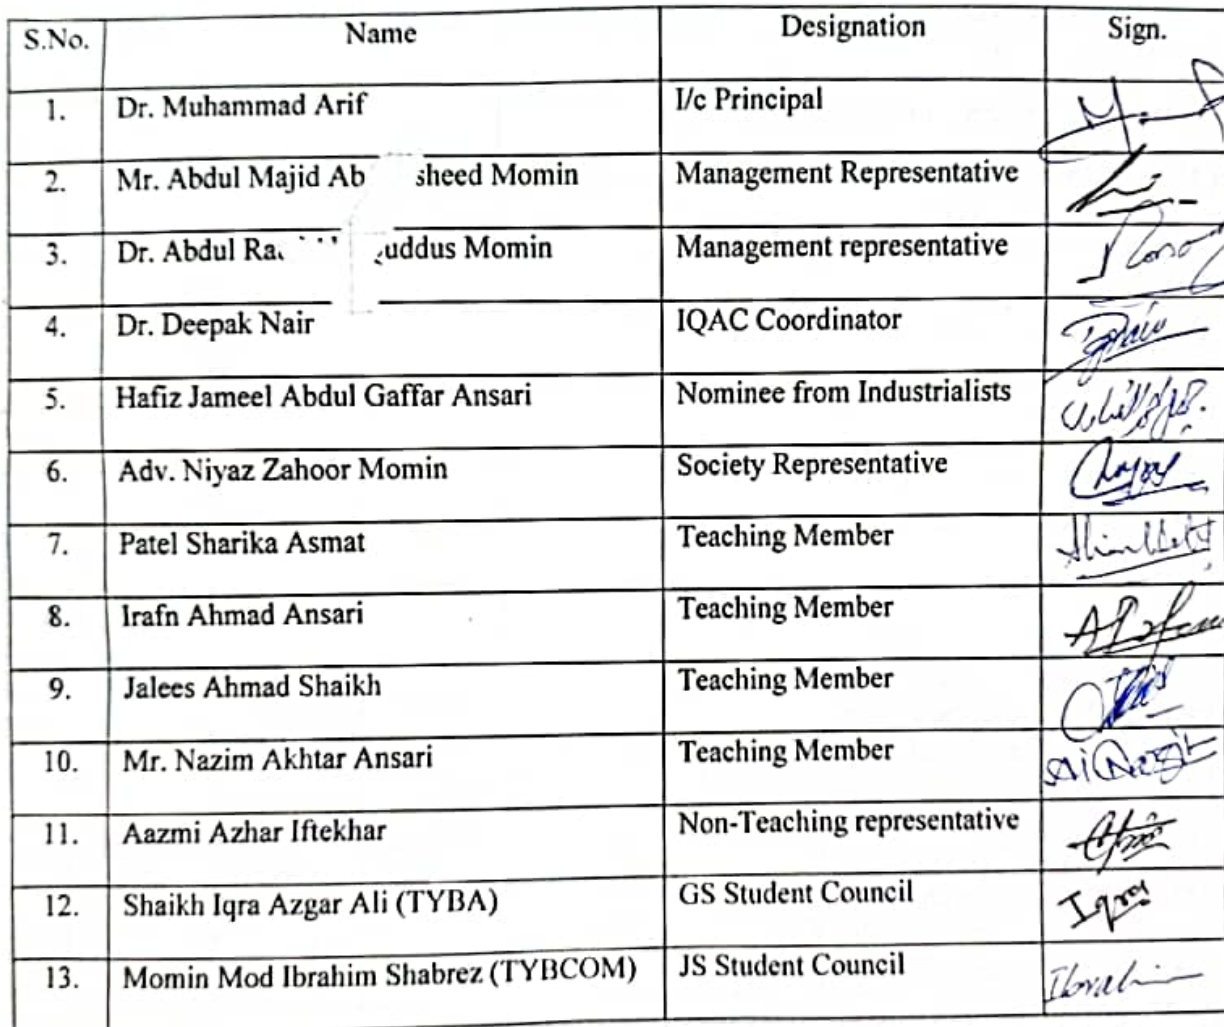 S.No. Name Designation Sign.
1. Dr. Muhammad Arif I/c Principal
2. Mr. Abdul Majid Ab sheed Momin Management Representative
3. Dr. Abdul Ra uddus Momin Management representative
4. Dr. Deepak Nair IQAC Coordinator
5. Hafiz Jameel Abdul Gaffar Ansari Nominee from Industrialists
6. Adv. Niyaz Zahoor Momin Society Representative
7. Patel Sharika Asmat Teaching Member
8. Irafn Ahmad Ansari Teaching Member
9. Jalees Ahmad Shaikh Teaching Member
10. Mr. Nazim Akhtar Ansari Teaching Member
11. Aazmi Azhar Iftekhar Non-Teaching representative
12. Shaikh Iqra Azgar Ali (TYBA) GS Student Council Iqra
13. Momin Mod Ibrahim Shabrez (TYBCOM) JS Student Council Ibrahim